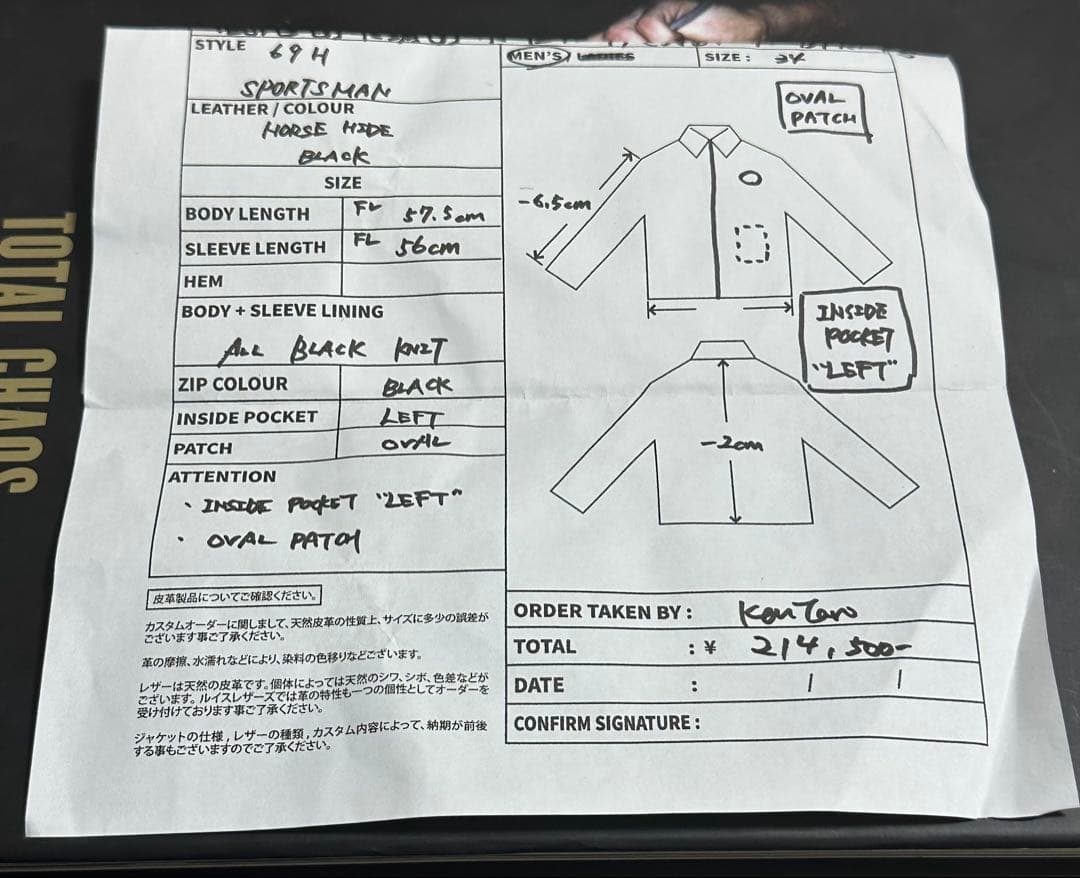 STYLE 69H
SPORTSMAN
LEATHER / COLOUR
HORSE HIDE
BLACK
SIZE
BODY LENGTH FL 57.5cm
SLEEVE LENGTH FL 56cm
HEM
BODY + SLEEVE LINING
ALL BLACK KNIT
ZIP COLOUR BLACK
INSIDE POCKET LEFT
PATCH OVAL
ATTENTION
・ INSIDE POCKET "LEFT"
・ OVAL PATCH
皮革製品についてご確認ください。
カスタムオーダーに関しまして、天然皮革の性質上、サイズに多少の誤差が
ございます事ご了承ください。
革の摩擦、水濡れなどにより、染料の色移りなどございます。
レザーは天然の皮革です。個体によっては天然のシワ、シボ、色差などが
ございます。ルイスレザーズでは革の特性も一つの個性としてオーダーを
受け付けております事ご了承ください。
ジャケットの仕様,レザーの種類,カスタム内容によって、納期が前後
する事もございますのでご了承ください。
MEN'S LADIES SIZE : 34
OVAL
PATCH
-6.5cm
INSIDE
POCKET
"LEFT"
-2cm
ORDER TAKEN BY : KenTaro
TOTAL : ¥ 214,500-
DATE : / /
CONFIRM SIGNATURE :
TOTAL CHAOS